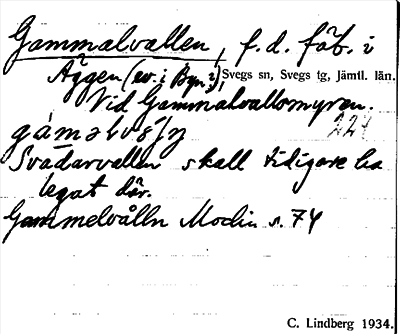 Gammalvallen, f.d. fäb. i
Äggen (ev. i Byn?), Svegs sn, Svegs tg, Jämtl. län.
Vid Gammalvallsmyren.
224
Svädarvallen skall tidigare ha
legat där.
Gammelvålln Modin s. 74
C. Lindberg 1934.